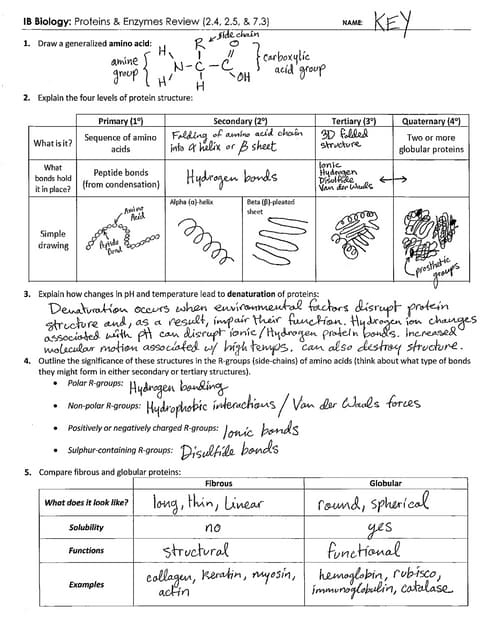 IB Biology: Proteins & Enzymes Review (2.4, 2.5, & 7.3)
NAME: KEY
1. Draw a generalized amino acid:
R side chain
amine group
H
H
N-C-C
O
OH
H
carboxylic acid group
2. Explain the four levels of protein structure:
Primary (1°) Secondary (2°) Tertiary (3°) Quaternary (4°)
What is it?
Sequence of amino acids
Folding of amino acid chain into α helix or β sheet
3D folded structure
Two or more globular proteins
What bonds hold it in place?
Peptide bonds (from condensation)
Hydrogen bonds
Ionic
Hydrogen
Disulfide
Van der Waals
Simple drawing
Amino Acid
Peptide Bond
Alpha (α)-helix
Beta (β)-pleated sheet
prosthetic groups
3. Explain how changes in pH and temperature lead to denaturation of proteins:
Denaturation occurs when environmental factors disrupt protein
structure and, as a result, impair their function. Hydrogen ion changes
associated with pH can disrupt ionic/Hydrogen protein bonds. increased
molecular motion associated w/ high temps. can also destroy structure.
4. Outline the significance of these structures in the R-groups (side-chains) of amino acids (think about what type of bonds
they might form in either secondary or tertiary structures).
• Polar R-groups: Hydrogen bonding
• Non-polar R-groups: Hydrophobic interactions / Van der Waals forces
• Positively or negatively charged R-groups: Ionic bonds
• Sulphur-containing R-groups: Disulfide bonds
5. Compare fibrous and globular proteins:
Fibrous Globular
What does it look like? long, thin, Linear round, spherical
Solubility no yes
Functions structural functional
Examples
collagen, keratin, myosin, actin
hemoglobin, rubisco, immunoglobulin, catalase